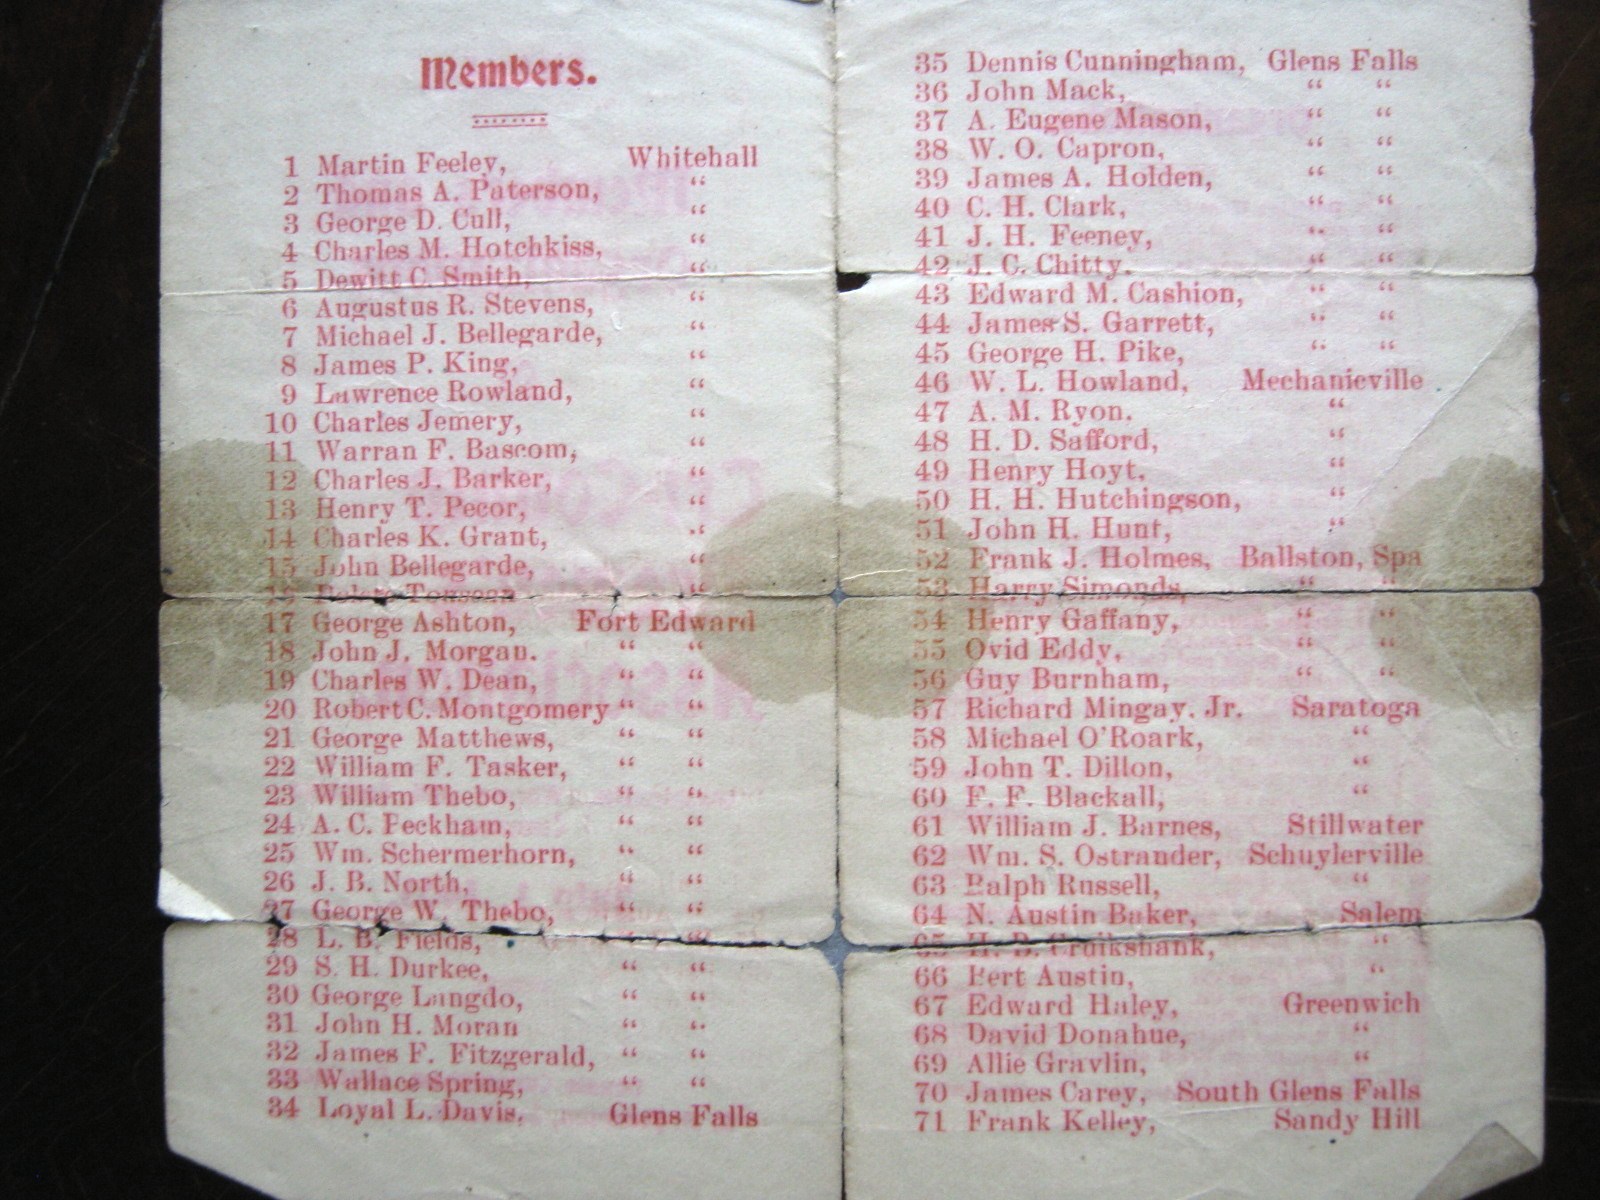 Members.
1 Martin Feeley, Whitehall
2 Thomas A. Paterson, “
3 George D. Cull, “
4 Charles M. Hotchkiss, “
5 Dewitt C. Smith, “
6 Augustus R. Stevens, “
7 Michael J. Bellegarde, “
8 James P. King, “
9 Lawrence Rowland, “
10 Charles Jemery, “
11 Warran F. Bascom, “
12 Charles J. Barker, “
13 Henry T. Pecor, “
14 Charles K. Grant, “
15 John Bellegarde, “
16 “
17 George Ashton, Fort Edward
18 John J. Morgan. “ “
19 Charles W. Dean, “ “
20 Robert C. Montgomery “ “
21 George Matthews, “ “
22 William F. Tasker, “ “
23 William Thebo, “ “
24 A. C. Peckham, “ “
25 Wm. Schermerhorn, “ “
26 J. B. North, “ “
27 George W. Thebo, “ “
28 L. B. Fields, “ “
29 S. H. Durkee, “ “
30 George Langdo, “ “
31 John H. Moran “ “
32 James F. Fitzgerald, “ “
33 Wallace Spring, “ “
34 Loyal L. Davis, Glens Falls
35 Dennis Cunningham, Glens Falls
36 John Mack, “ “
37 A. Eugene Mason, “ “
38 W. O. Capron, “ “
39 James A. Holden, “ “
40 C. H. Clark, “ “
41 J. H. Feeney, “ “
42 J. C. Chitty. “ “
43 Edward M. Cashion, “ “
44 James S. Garrett, “ “
45 George H. Pike, “ “
46 W. L. Howland, Mechanicville
47 A. M. Ryon. “
48 H. D. Safford, “
49 Henry Hoyt, “
50 H. H. Hutchingson, “
51 John H. Hunt, “
52 Frank J. Holmes, Ballston, Spa
53 Harry Simonds, “ “
54 Henry Gaffany, “ “
55 Ovid Eddy, “ “
56 Guy Burnham, “ “
57 Richard Mingay. Jr. Saratoga
58 Michael O'Roark, “
59 John T. Dillon, “
60 F. F. Blackall, “
61 William J. Barnes, Stillwater
62 Wm. S. Ostrander, Schuylerville
63 Ralph Russell, “
64 N. Austin Baker, Salem
65 H. B. Cruikshank, “
66 Bert Austin, “
67 Edward Haley, Greenwich
68 David Donahue, “
69 Allie Gravlin, “
70 James Carey, South Glens Falls
71 Frank Kelley, Sandy Hill